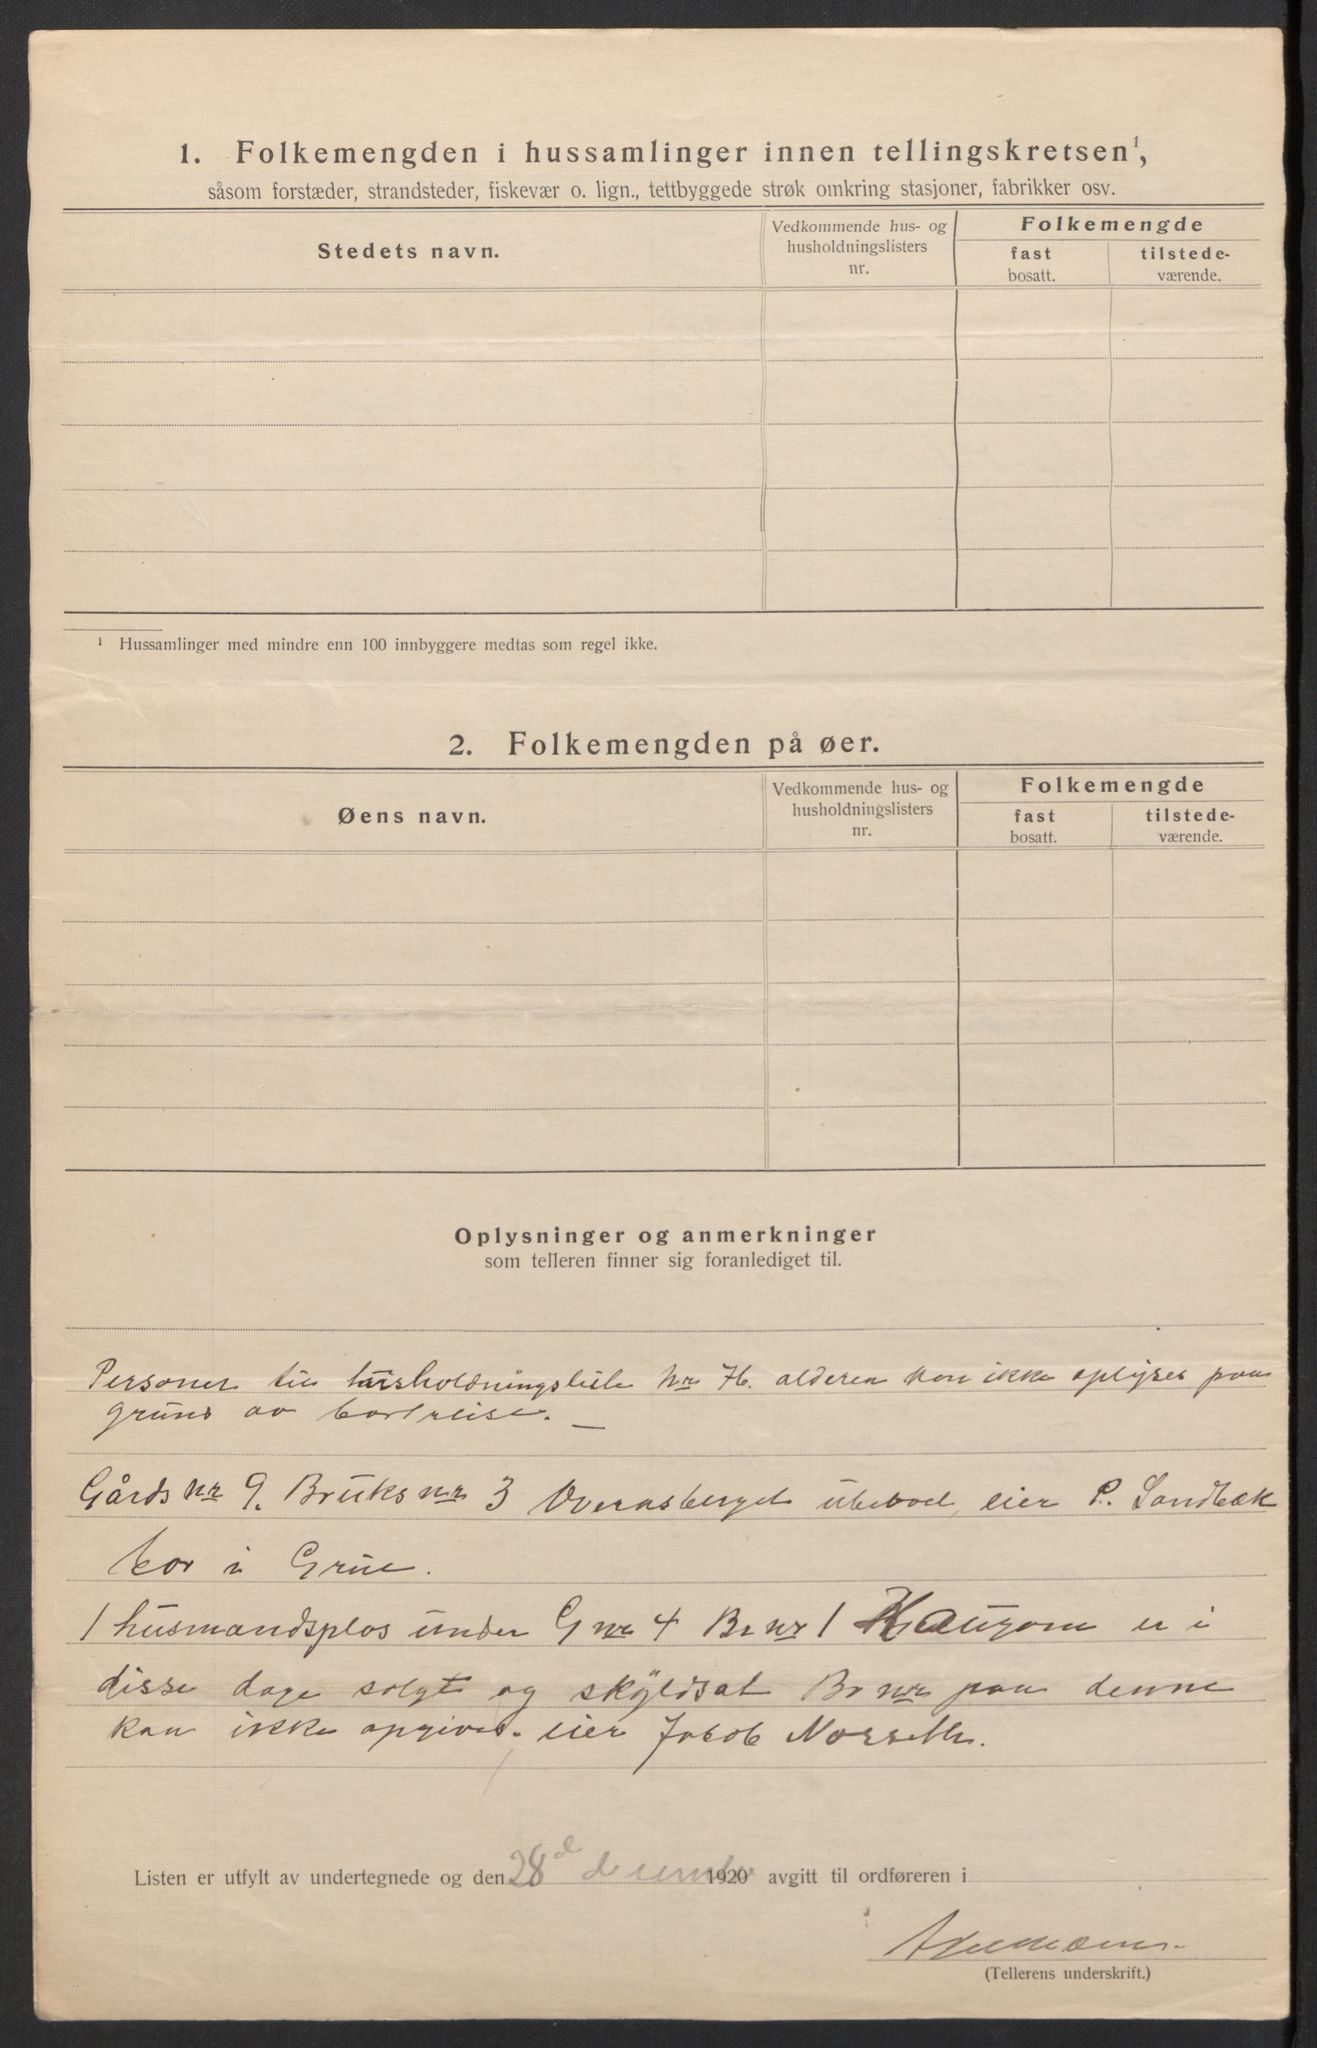 1. Folkemengden i hussamlinger innen tellingskretsen¹,
såsom forstæder, strandsteder, fiskevær o. lign., tettbyggede strøk omkring stasjoner, fabrikker osv.
Stedets navn.
Vedkommende hus- og
husholdningslisters
nr.
Folkemengde
fast
bosatt.
tilstede-
værende.
¹ Hussamlinger med mindre enn 100 innbyggere medtas som regel ikke.
2. Folkemengden på øer.
Øens navn.
Vedkommende hus- og
husholdningslisters
nr.
Folkemengde
fast
bosatt.
tilstede-
værende.
Oplysninger og anmerkninger
som telleren finner sig foranlediget til.
Personer til husholdningsliste Nr alderen kan ikke oplyses paa
grund av bortreise. —
Gårds nr 9. Bruks nr 3 Overasberget ubebod, eier P. Sandbæk
bor i Grue.
1 husmandsplas under G nr 4 Br nr 1 Haugom er i
disse dage solgt og skyldsat Br nr paa denne
kan ikke opgives. eier Jakob Norseth.
Listen er utfylt av undertegnede og den 28d desember 1920 avgitt til ordføreren i
(Tellerens underskrift.)